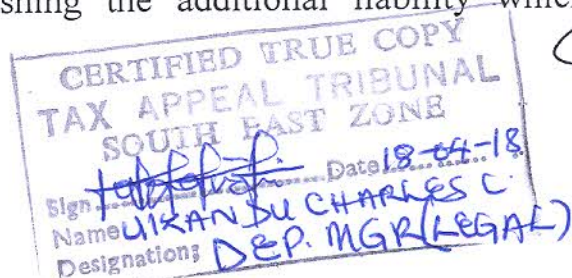 shing the additional liability
CERTIFIED TRUE COPY
TAX APPEAL TRIBUNAL
SOUTH EAST ZONE
Sign Date 18-04-18
Name UIKANDU CHARLES C.
Designation: DEP. MGR (LEGAL)